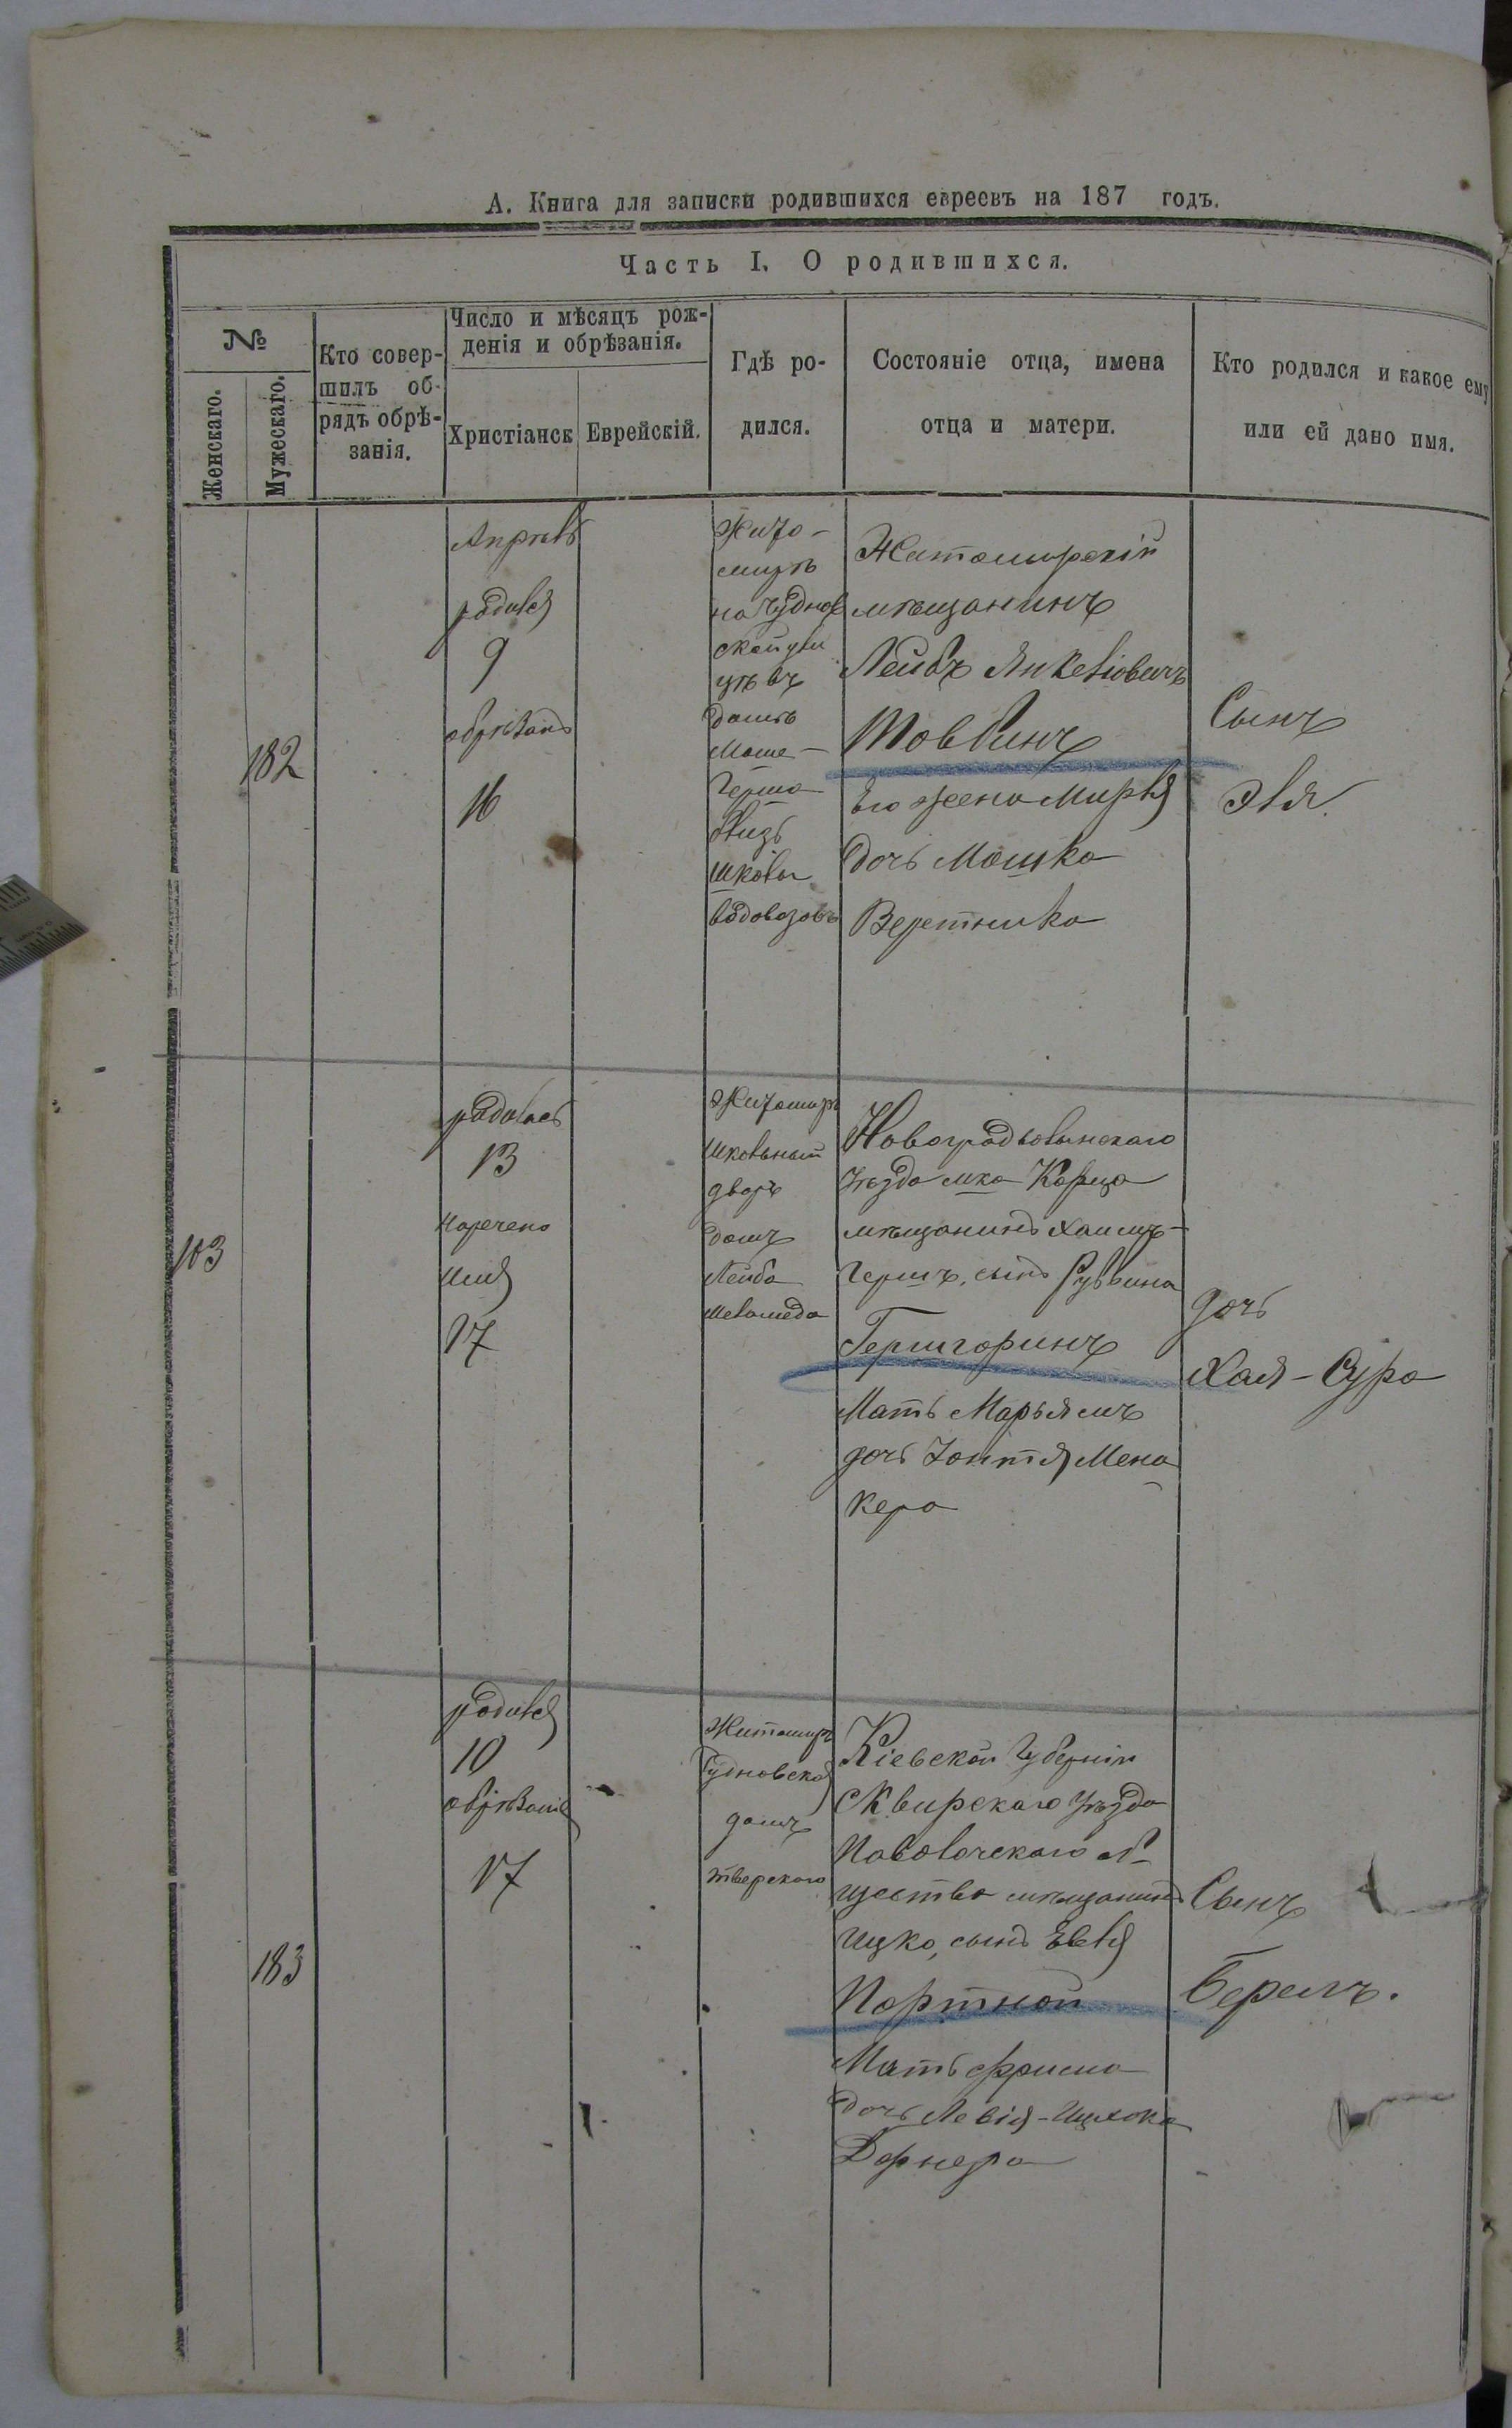 А. Книга для записки родившихся евреевъ на 187 годъ.
Часть I. О родившихся.
№
Женскаго.
Мужескаго.
Кто совер-
шилъ об-
рядъ обрѣ-
занія.
Число и мѣсяцъ рож-
денія и обрѣзанія.
Христіанск
Еврейскій.
Гдѣ ро-
дился.
Состояніе отца, имена
отца и матери.
Кто родился и какое ему
или ей дано имя.
182
Апрѣль
родился
9
обрѣзанъ
16
Жито-
миръ
на Чуднов
ской ули
цѣ въ
домѣ
Моше-
Герша
водовозовъ
Житомирскій
мѣщанинъ
Лейбъ Янкеліовичъ
Товбинъ
Его жена Мирля
дочь Мошка
Веретника
Сынъ
Эля.
103
родилась
13
Наречено
имя
17
Житомиръ
Школьный
дворъ
домъ
Лейба
Меламеда
Новоградволынскаго
уѣзда мка Корца
мѣщанинъ Хаимъ-
Гершъ, сынъ Рувина
Гершгоринъ
Мать Марьямъ
дочь Мена
кера
дочь
Хая-Сура
183
родился
10
обрѣзаніе
17
Житомиръ
Чудновская
домъ
Тверскаго
Кіевской Губерніи
Сквирскаго уѣзда
Паволочскаго об-
щества мѣщанинъ
Ицко, сынъ
Портной
Мать Фрима
дочь Левія-Ицхока
Дорнера
Сынъ
Берелъ.